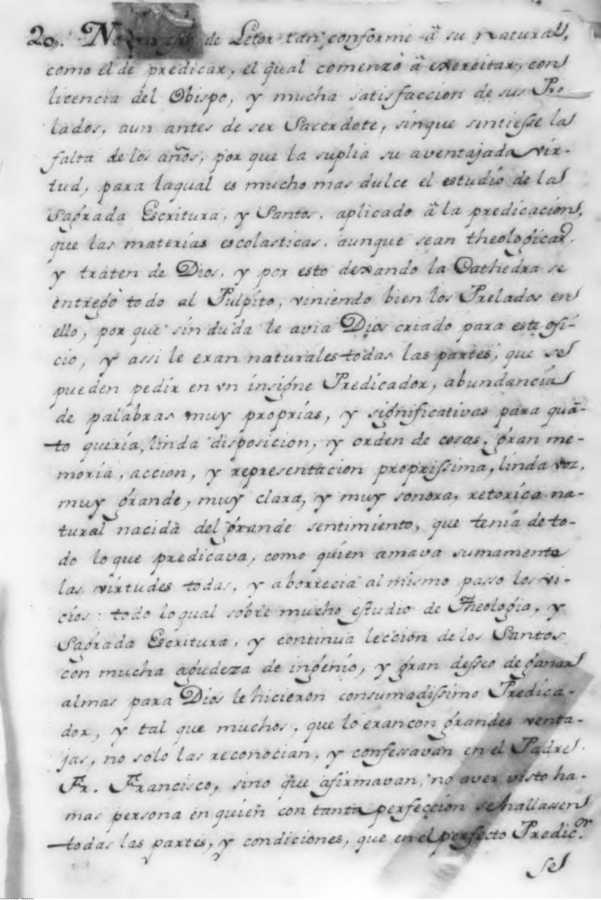 20. No de Letor tan conforme â su natural,
como el de predicar, el qual comenzò â exercitar, con
licencia del Obispo, y mucha satisfaccion de sus Pre-
lados, aun antes de ser Sacerdote, sinque sintiesse la
falta de los años, por que la suplia su aventajada vir-
tud, para laqual es mucho mas dulce el estudio de la
Sagrada Escritura, y Santos, aplicado â la predicacion,
que las materias escolasticas, aunque sean theologicas,
y traten de Dios, y por esto dexando la Cathedra se
entregò todo al Pulpito, viniendo bien los Prelados en
ello, por que sin duda le avia Dios criado para este ofi-
cio, y assi le eran naturales todas las partes, que se
pueden pedir en vn insigne Predicador, abundancia
de palabras muy proprias, y significativas para quã-
to queria, linda disposicion, y orden de cosas, gran me-
moria, accion, y representacion proprissima, linda voz,
muy grande, muy clara, y muy sonora, retorica na-
tural nacida del grande sentimiento, que tenia de to-
do lo que predicava, como quien amava sumamente
las virtudes todas, y aborrecia al mismo passo los vi-
cios: todo lo qual sobre mucho estudio de Theologia, y
Sagrada Escritura, y continua leccion de los Santos
con mucha agudeza de ingenio, y gran desseo de ganar
almas para Dios le hicieron consumadissimo Predica-
dor, y tal que muchos, que lo eran con grandes venta-
jas, no solo las reconocian, y confessavan en el Padre
Fr. Francisco, sino que afirmavan, no aver visto ja-
mas persona en quien con tanta perfeccion se hallassen
todas las partes, y condiciones, que en el perfecto Predic.or
se